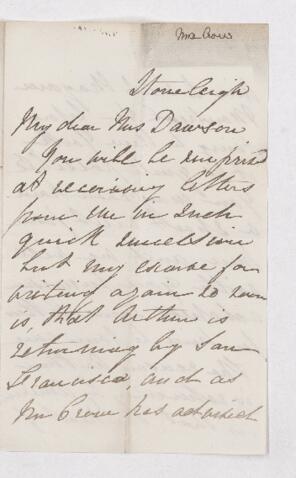 Mrs Crow
Stoneleigh
My dear Mrs Dawson
You will be surprised
at receiving letters
from me in such
quick succession
but my excuse for
writing again so soon
is, that Arthur is
returning by San
Francisco, and as
Mr Crow has